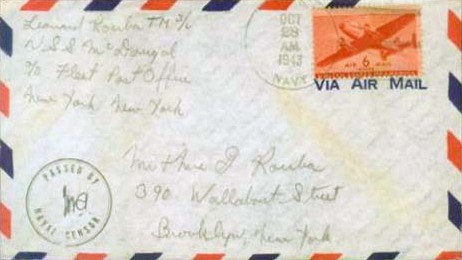 Leonard Rosuba TM 3/c
U.S.S. McDougal
c/o Fleet Post Office
New York New York
OCT
28
AM
1943
NAVY
AIR 6 MAIL
VIA AIR MAIL
PASSED BY
NAVAL CENSOR
390 Wallabout Street
Brooklyn, New York